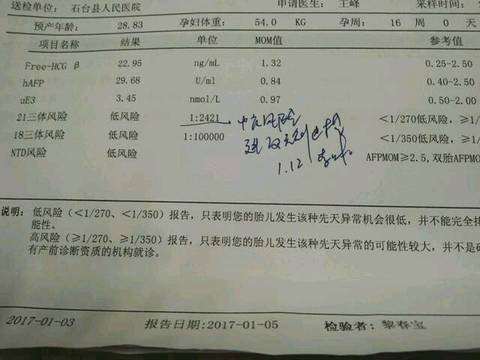 送检单位: 石台县人民医院 申请医生: 王峰 采样时间:
预产年龄: 28.83 孕妇体重: 54.0 KG 孕周: 16 周 0 天
项目名称 结果 单位 MOM值 参考值
Free-HCG β 22.95 ng/mL 1.32 0.25-2.50
hAFP 29.68 U/ml 0.84 0.40-2.50
uE3 3.45 nmol/L 0.97 0.50-2.00
21三体风险 低风险 1:2421 <1/270低风险, ≥1/
18三体风险 低风险 1:100000 <1/350低风险, ≥1/
NTD风险 低风险 AFPMOM≥2.5, 双胎AFPMOM
1.12
说明: 低风险(<1/270、<1/350)报告,只表明您的胎儿发生该种先天异常机会很低,并不能完全排
能性。
高风险(≥1/270、≥1/350)报告,只表明您的胎儿发生该种先天异常的可能性较大,并不是确
有产前诊断资质的机构就诊。
2017-01-03 报告日期:2017-01-05 检验者: 黎春宝